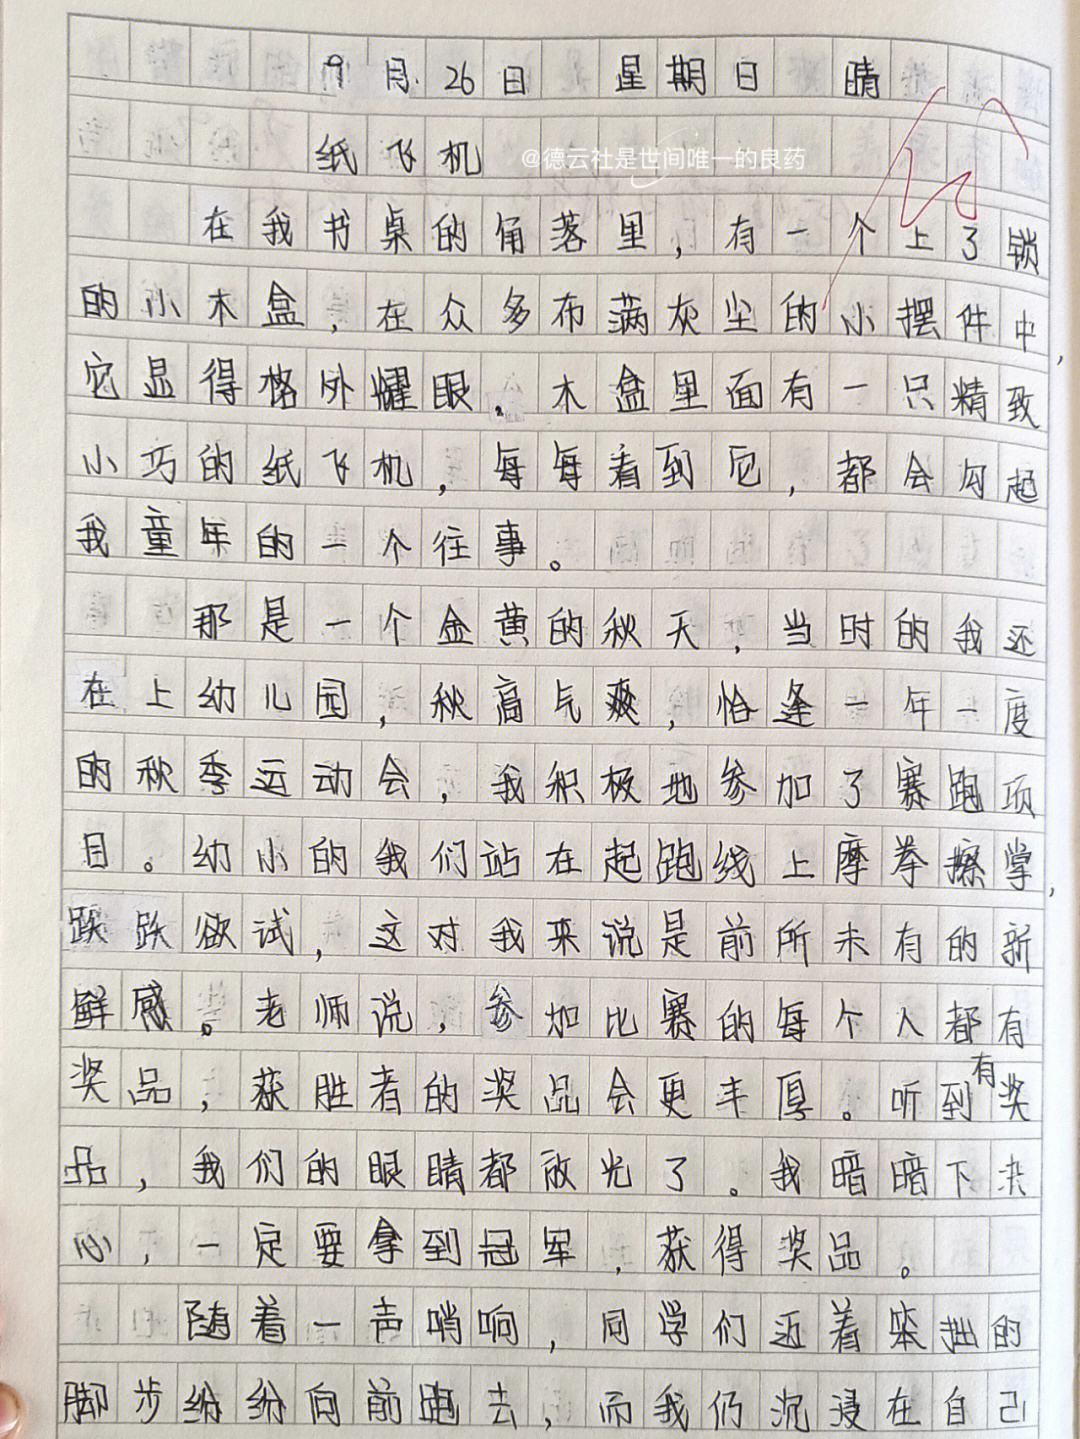 9月26日 星期日 晴
纸飞机
@德云社是世间唯一的良药
在我书桌的角落里，有一个上了锁
的小木盒，在众多布满灰尘的小摆件中，
它显得格外耀眼。木盒里面有一只精致
小巧的纸飞机，每每看到它，都会勾起
我童年的一个往事。
那是一个金黄的秋天，当时的我还
在上幼儿园，秋高气爽，恰逢一年一度
的秋季运动会，我积极地参加了赛跑项
目。幼小的我们站在起跑线上摩拳擦掌，
跃跃欲试，这对我来说是前所未有的新
鲜感。老师说，参加比赛的每个人都有
奖品，获胜者的奖品会更丰厚。听到有奖
品，我们的眼睛都放光了。我暗暗下决
心，一定要拿到冠军，获得奖品。
随着一声哨响，同学们迈着笨拙的
脚步纷纷向前跑去，而我仍沉浸在自己